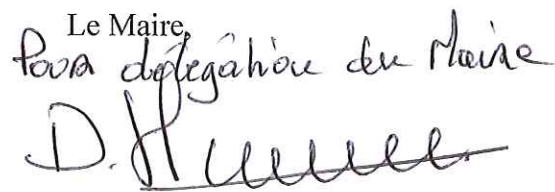 Le Maire,
Pour délégation du Maire
D.